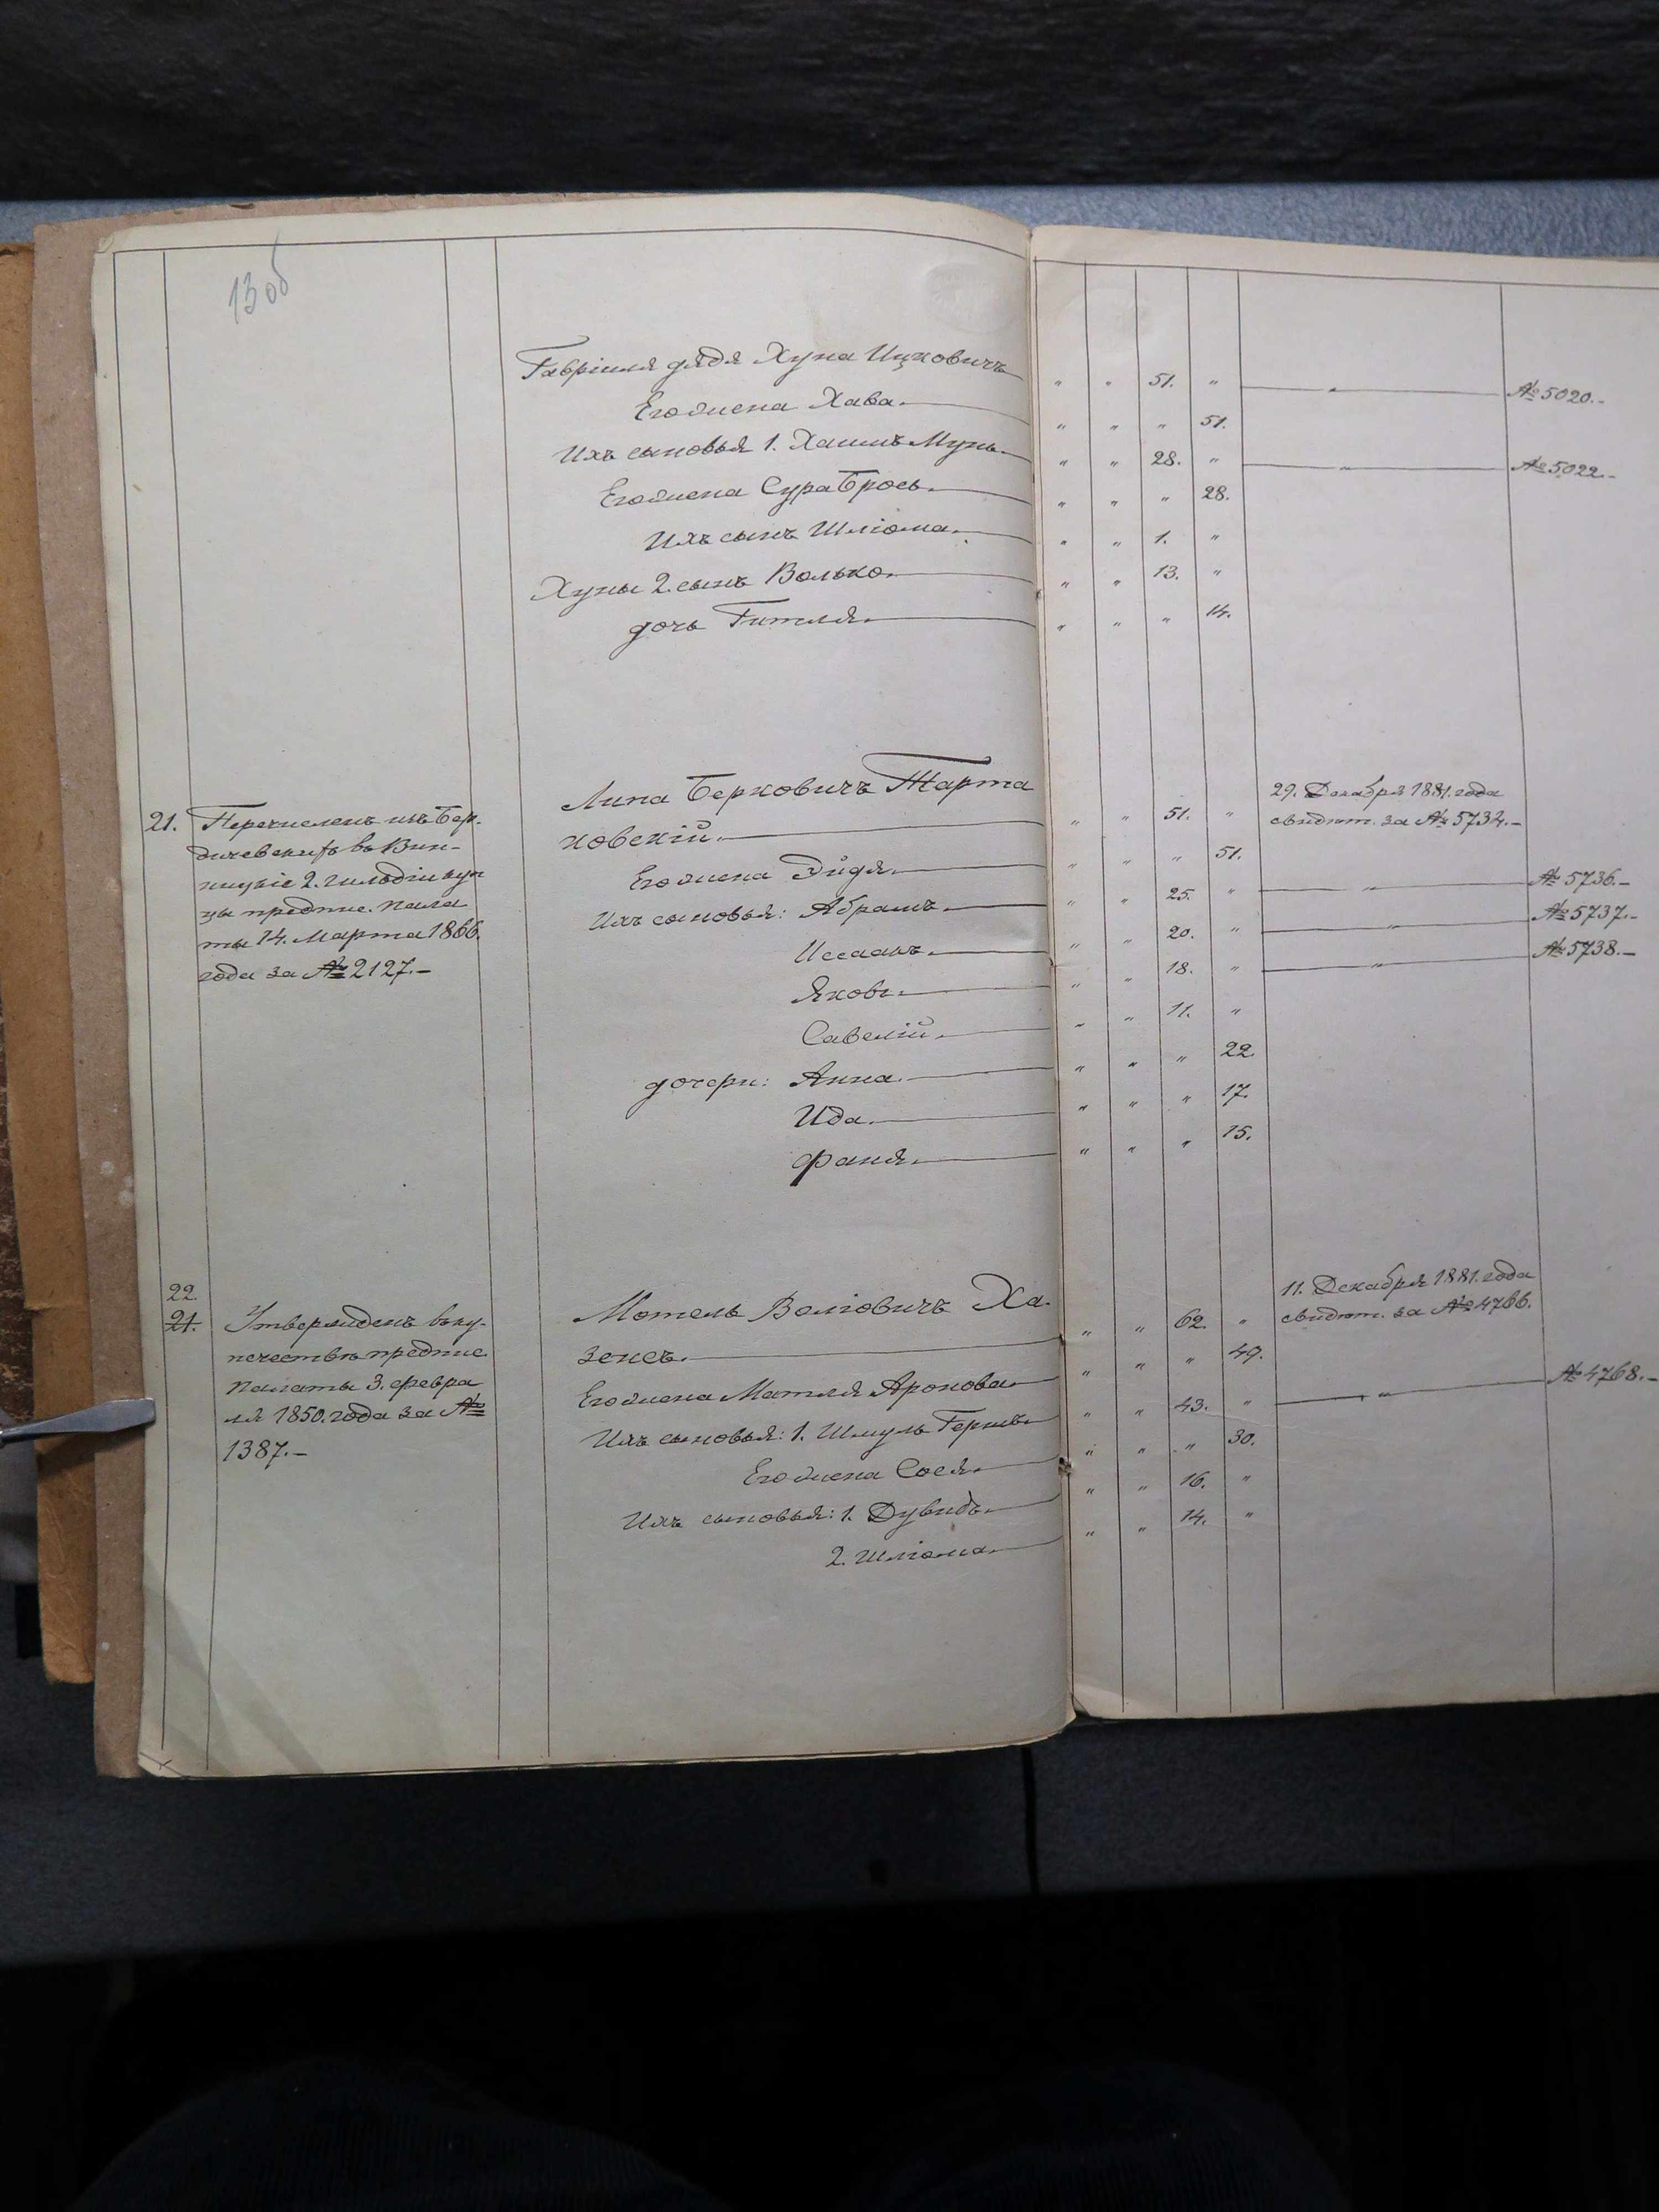 13 об
Гавріила дядя Хуна Ицковичъ " " 51. " " № 5020.-
Его жена Хава. " " " 51.
Ихъ сыновья 1. Хаимъ Мунь. " " 28. " " № 5022.-
Его жена Сура Брось. " " " 28.
Ихъ сынъ Шліома. " " 1. "
Хуны 2. сынъ Волько. " " 13. "
дочь Гитля. " " " 14.
21. Перечисленъ изъ Бер-
дичевских въ Вин-
ницкіе 2. гильдіи куп
цы предпис. Пала
ты 14. Марта 1866.
года за № 2127.-
Липа Берковичъ Тарта
ковскій. " " 51. "
29. Декабря 1881. года
свидѣт. за № 5734.-
Его жена Эйдя. " " " 51.
Ихъ сыновья: Абрамъ. " " 25. " " № 5736.-
Исаакъ. " " 20. " " № 5737.-
Яковъ. " " 18. " " № 5738.-
Савелій. " " 11. "
дочери: Анна. " " " 22.
Ида. " " " 17.
Фаня. " " " 15.
22.
21. Утвержденъ въ ку-
печествѣ предпис.
Палаты 3. Февра
ля 1850. года за №
1387.-
Мотель Волговичъ Ха-
зенсъ. " " 62. "
11. Декабря 1881. года
свидѣт. за № 4766.
Его жена Матля Аронова " " " 49.
Ихъ сыновья: 1. Шмуль Гершъ. " " 43. " " № 4768.-
Его жена Сося. " " " 30.
Ихъ сыновья: 1. Дувидъ. " " 16. "
2. Шліома. " " 14. "